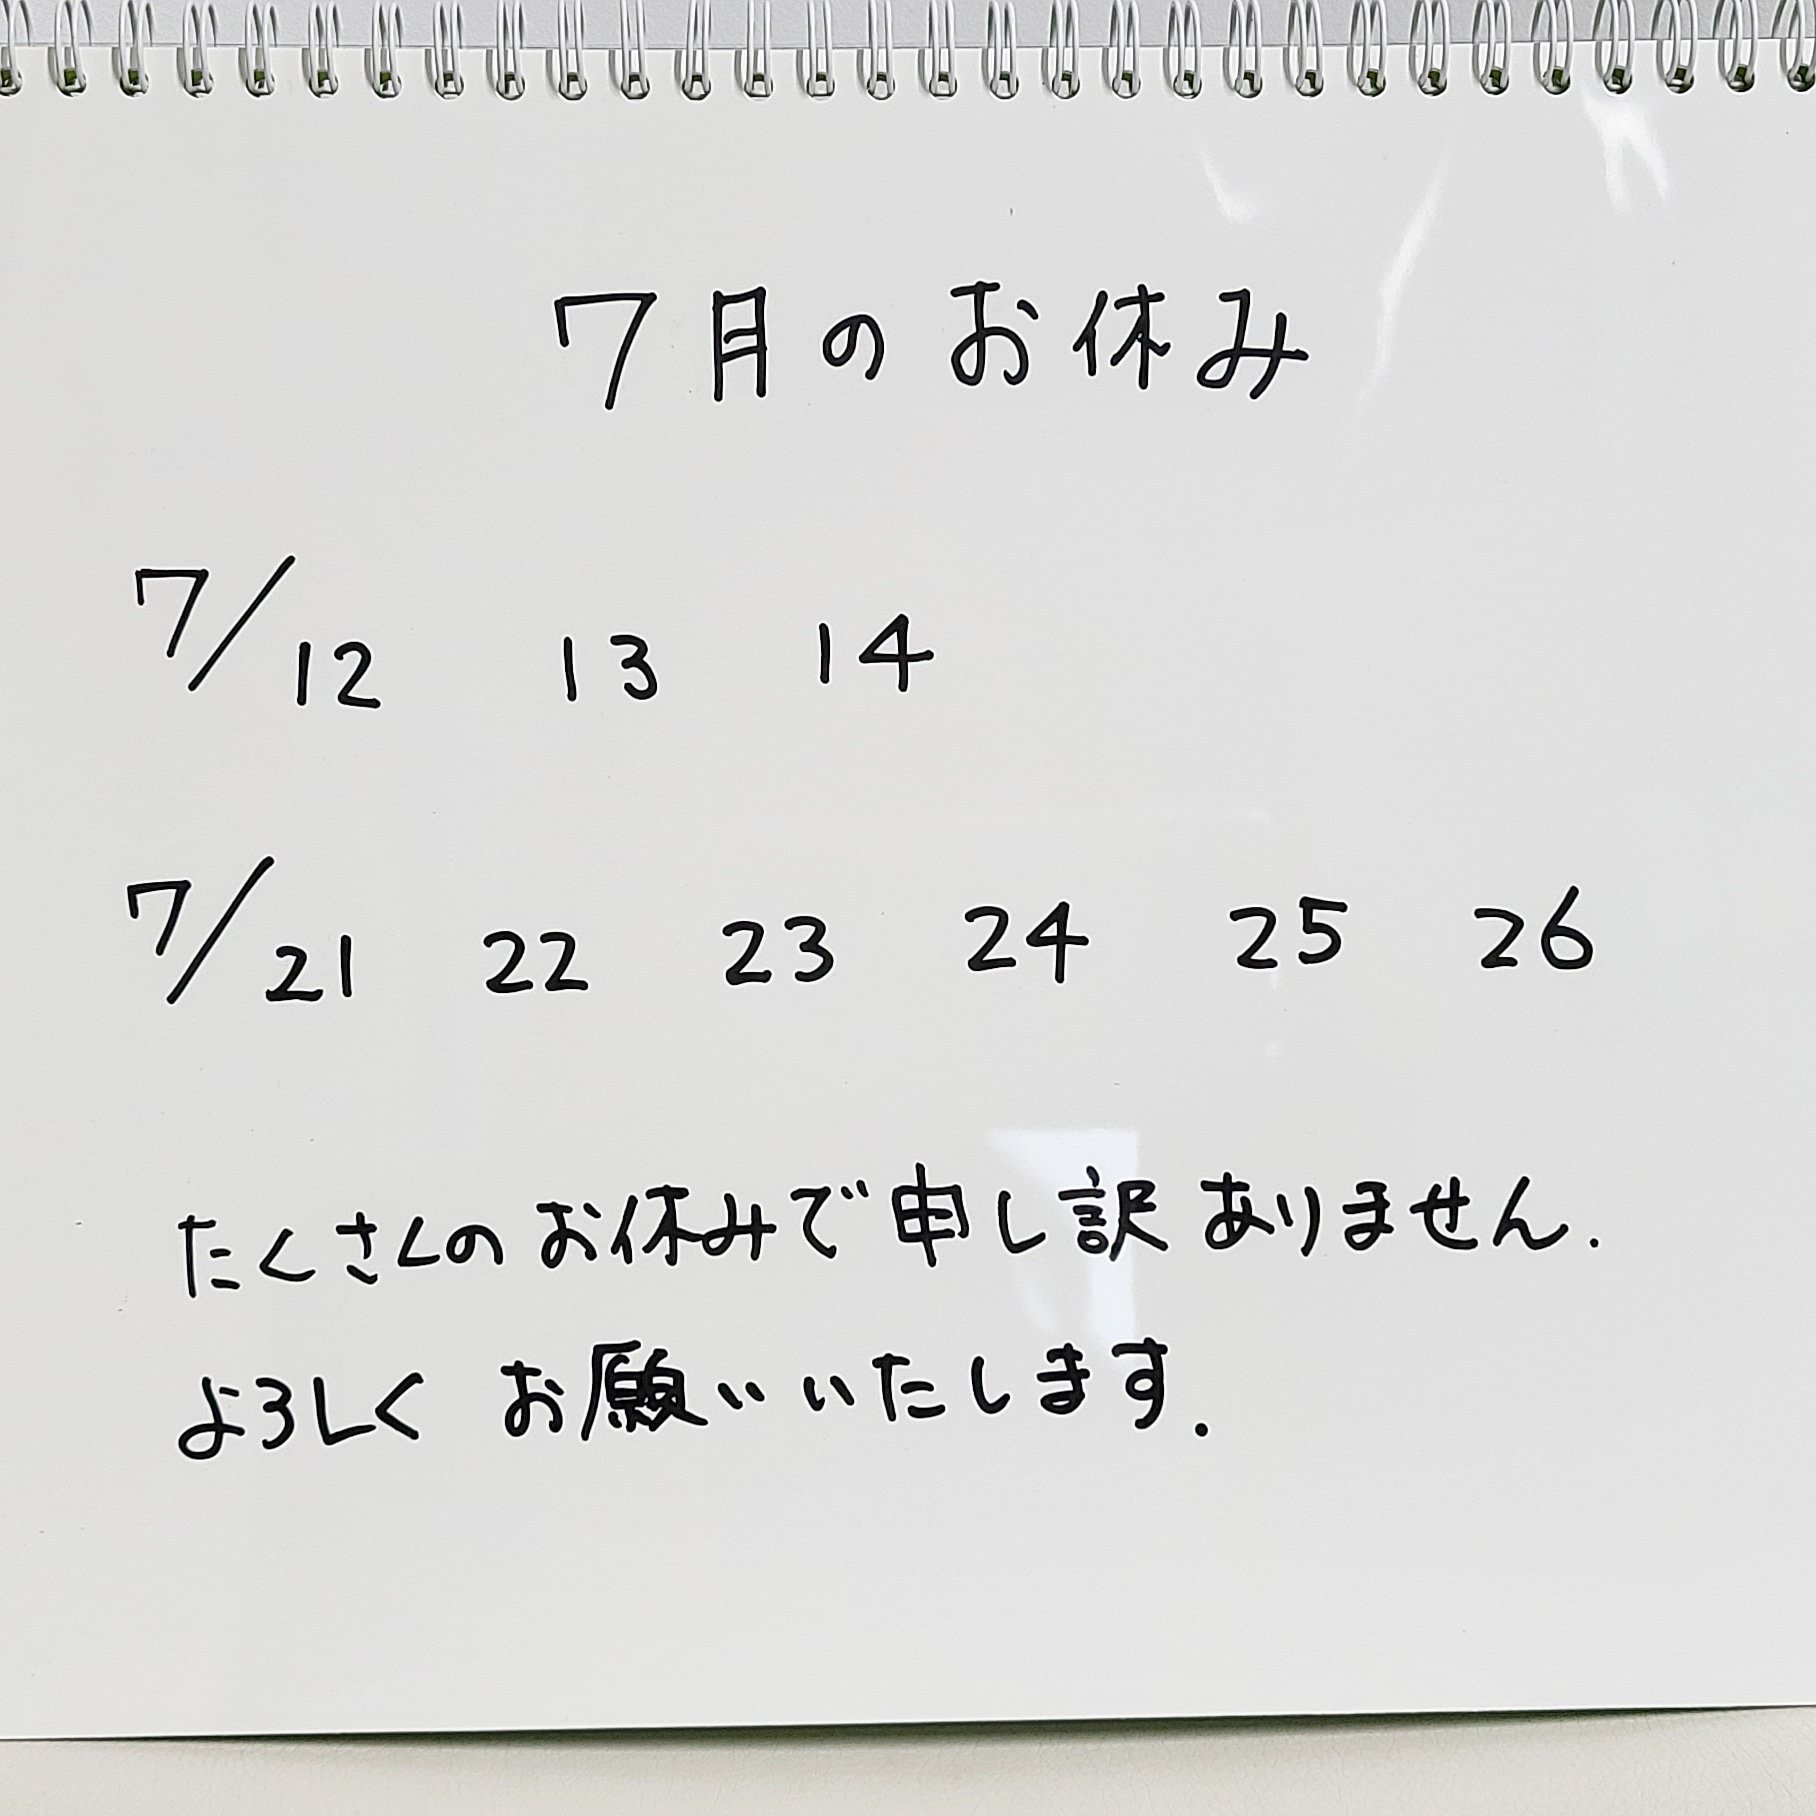 7月のお休み
7/12 13 14
7/21 22 23 24 25 26
たくさんのお休みで申し訳ありません.
よろしくお願いいたします.